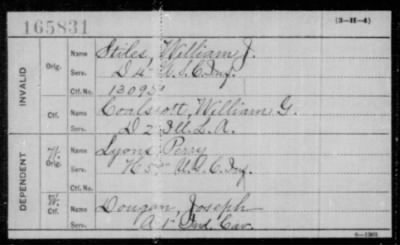 165831
(3-H-4)
INVALID
Orig.
Name Stiles, William J.
Serv. D 4" U.S.C. Inf.
Ctf. No. 13095
Ctf.
Name Coalscott, William G.
Serv. D 2 Ill. L. A.
DEPENDENT
W.
Orig.
Name Lyons Perry
Serv. K 5" U.S.C. Inf.
Ctf. No.
W.
Ctf.
Name Dougan, Joseph
Serv. A 1" Ind. Cav.